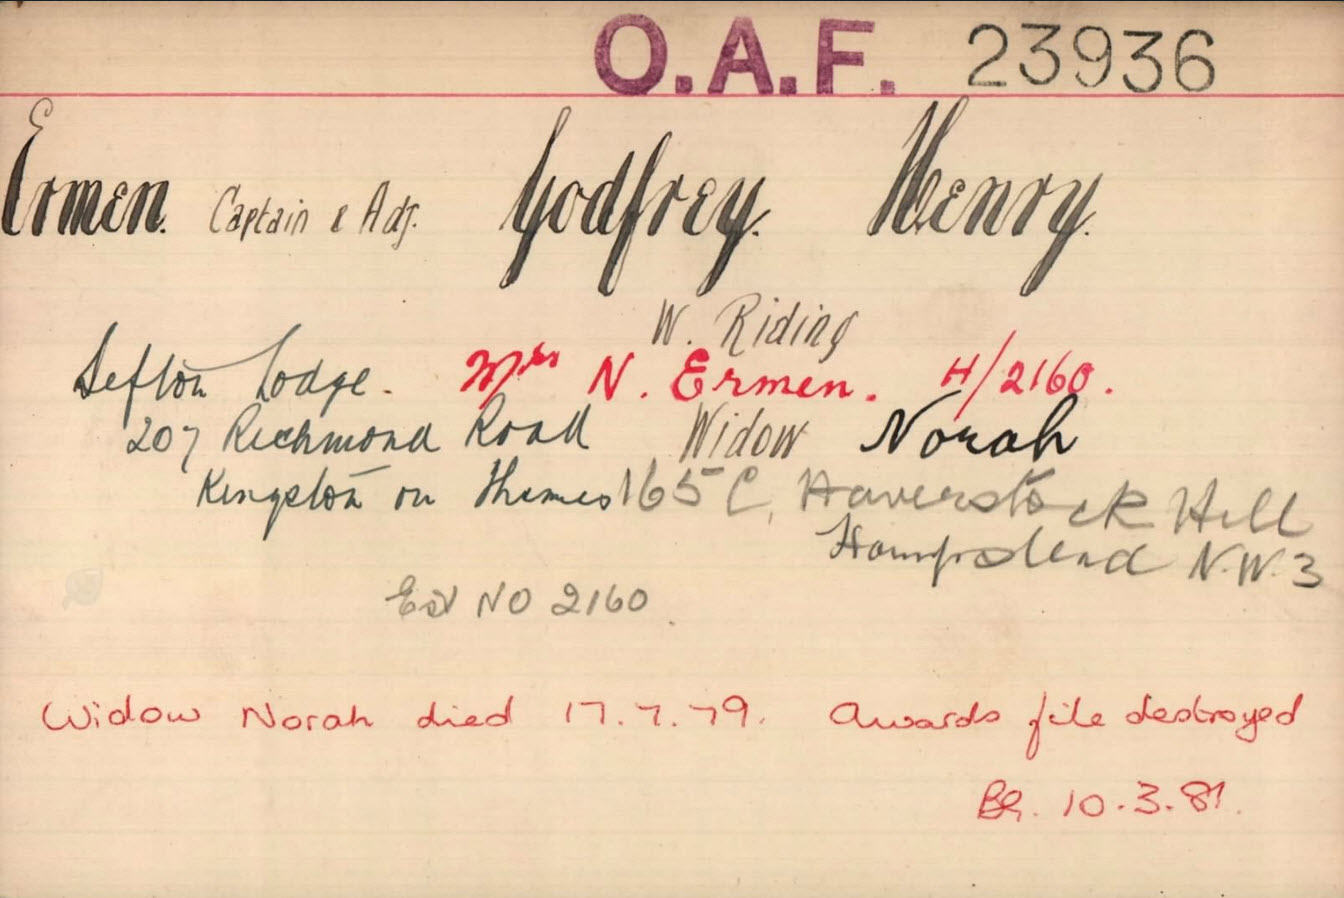 O.A.F. 23936
Ermen. Captain & Adj. Godfrey. Henry.
W. Riding
Sefton Lodge. Mrs N. Ermen. H/2160.
207 Richmond Road Widow Norah
Kingston on Thames 165 C, Haverstock Hill
Hampstead N.W.3
NO 2160
Widow Norah died 17.7.79. Awards file destroyed
10.3.81.